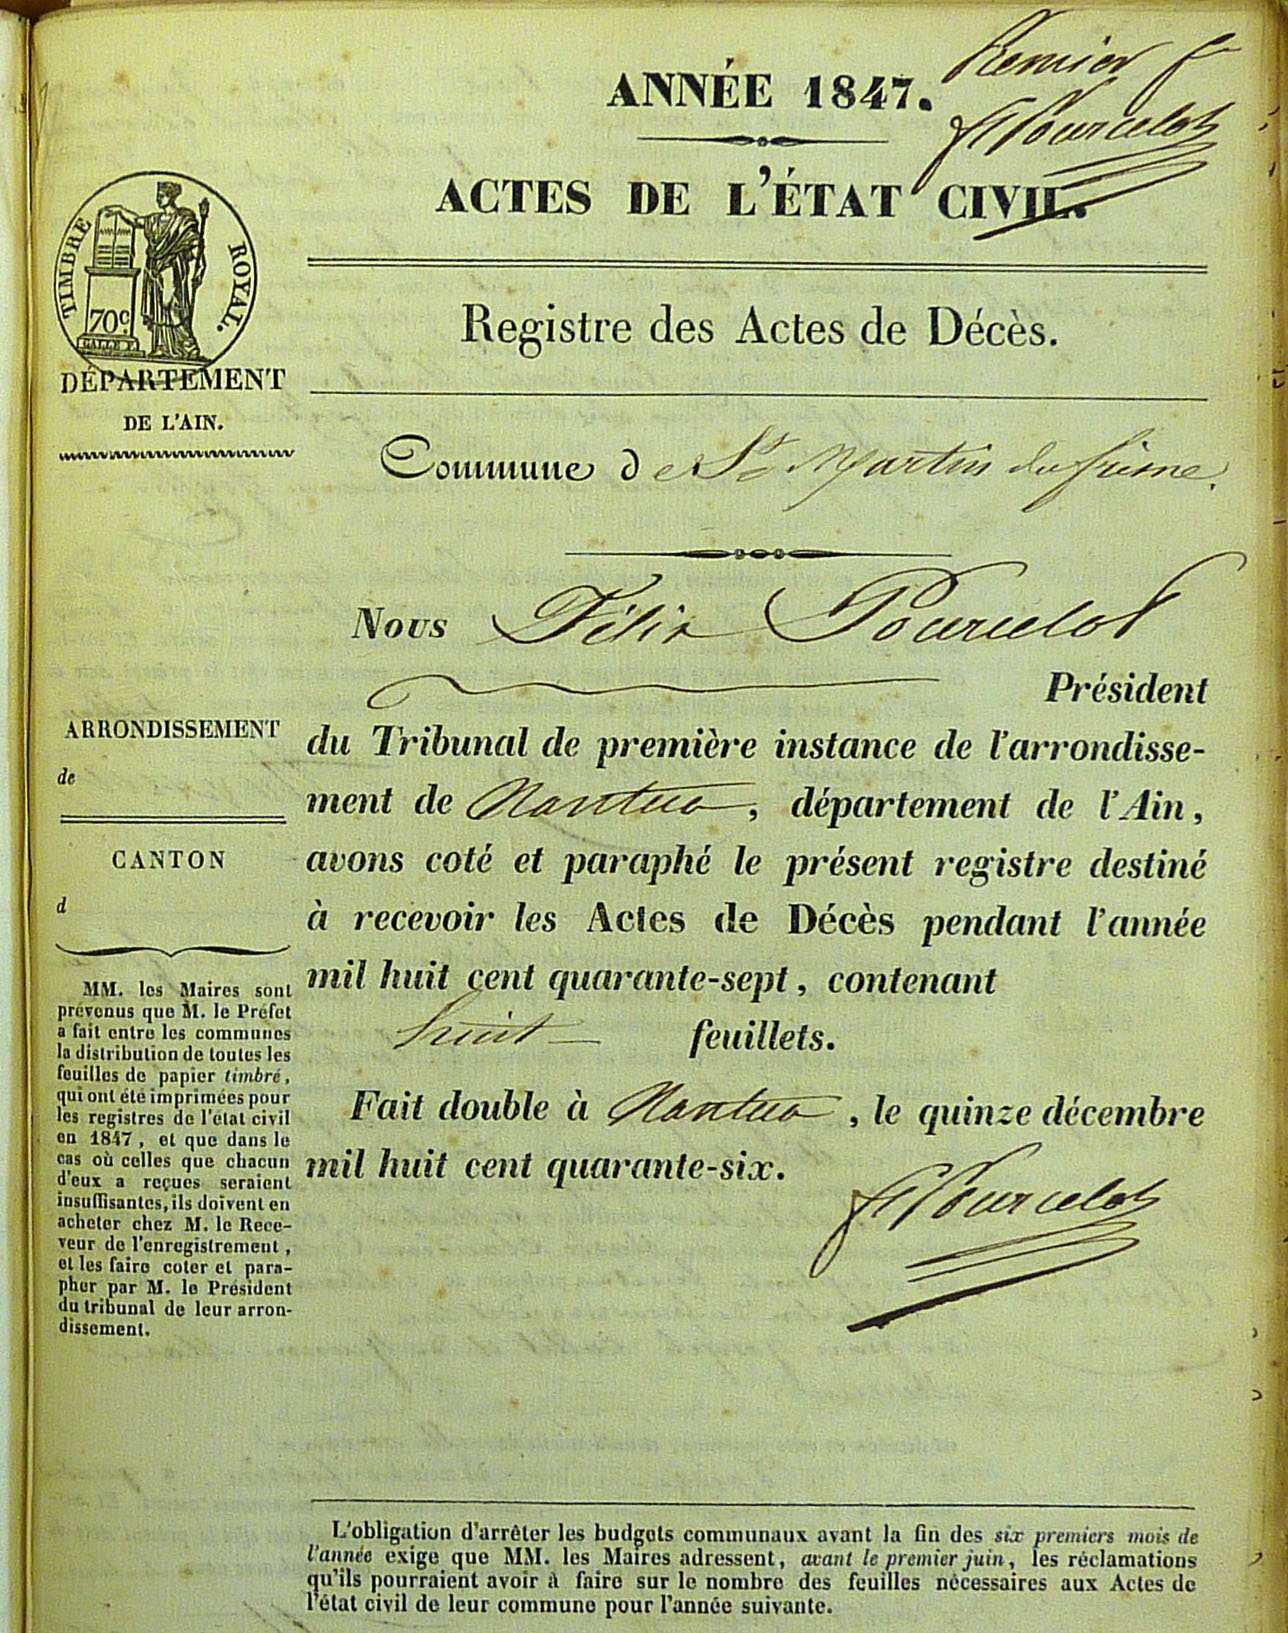 Premier f
ft Pourcelot
ANNÉE 1847.
ACTES DE L'ÉTAT CIVIL.
TIMBRE ROYAL.
70c
DÉPARTEMENT
DE L'AIN.
Registre des Actes de Décès.
Commune de St Martin du fresne.
Nous Félix Pourcelot
Président
du Tribunal de première instance de l'arrondisse-
ment de Nantua, département de l'Ain,
avons coté et paraphé le présent registre destiné
à recevoir les Actes de Décès pendant l'année
mil huit cent quarante-sept, contenant
huit feuillets.
Fait double à Nantua, le quinze décembre
mil huit cent quarante-six.
ft Pourcelot
ARRONDISSEMENT
de
CANTON
d
MM. les Maires sont
prévenus que M. le Préfet
a fait entre les communes
la distribution de toutes les
feuilles de papier timbré,
qui ont été imprimées pour
les registres de l'état civil
en 1847, et que dans le
cas où celles que chacun
d'eux a reçues seraient
insuffisantes, ils doivent en
acheter chez M. le Rece-
veur de l'enregistrement,
et les faire coter et para-
pher par M. le Président
du tribunal de leur arron-
dissement.
L'obligation d'arrêter les budgets communaux avant la fin des six premiers mois de
l'année exige que MM. les Maires adressent, avant le premier juin, les réclamations
qu'ils pourraient avoir à faire sur le nombre des feuilles nécessaires aux Actes de
l'état civil de leur commune pour l'année suivante.